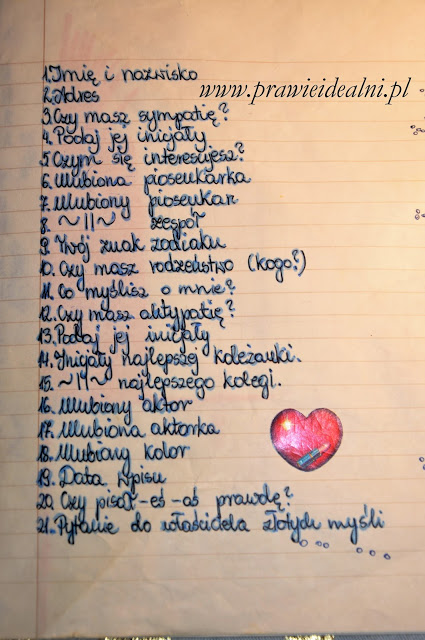 1. Imię i nazwisko
www.prawieidealni.pl
2. Adres
3. Czy masz sympatię?
4. Podaj jej inicjały
5. Czym się interesujesz?
6. Ulubiona piosenkarka
7. Ulubiony piosenkarz
8. ~||~ zespół
9. Twój znak zodiaku
10. Czy masz rodzeństwo (kogo?)
11. Co myślisz o mnie?
12. Czy masz antypatię?
13. Podaj jej inicjały
14. Inicjały najlepszej koleżanki.
15. ~||~ najlepszego kolegi.
16. Ulubiony aktor
17. Ulubiona aktorka
18. Ulubiany kolor
19. Data wpisu
20. Czy pisał-eś-aś prawdę?
21. Pytanie do właściciela złotych myśli